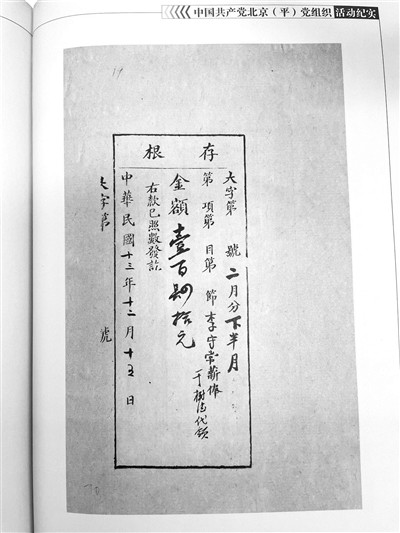 中国共产党北京（平）党组织 活动纪实
存根
大字第 號 二月分下半月
第 項第 目第 節 李守常薪俸
于树德代领
金額壹百肆拾元
右款已照數發訖
中華民國十三年十二月十五日
大字第 號